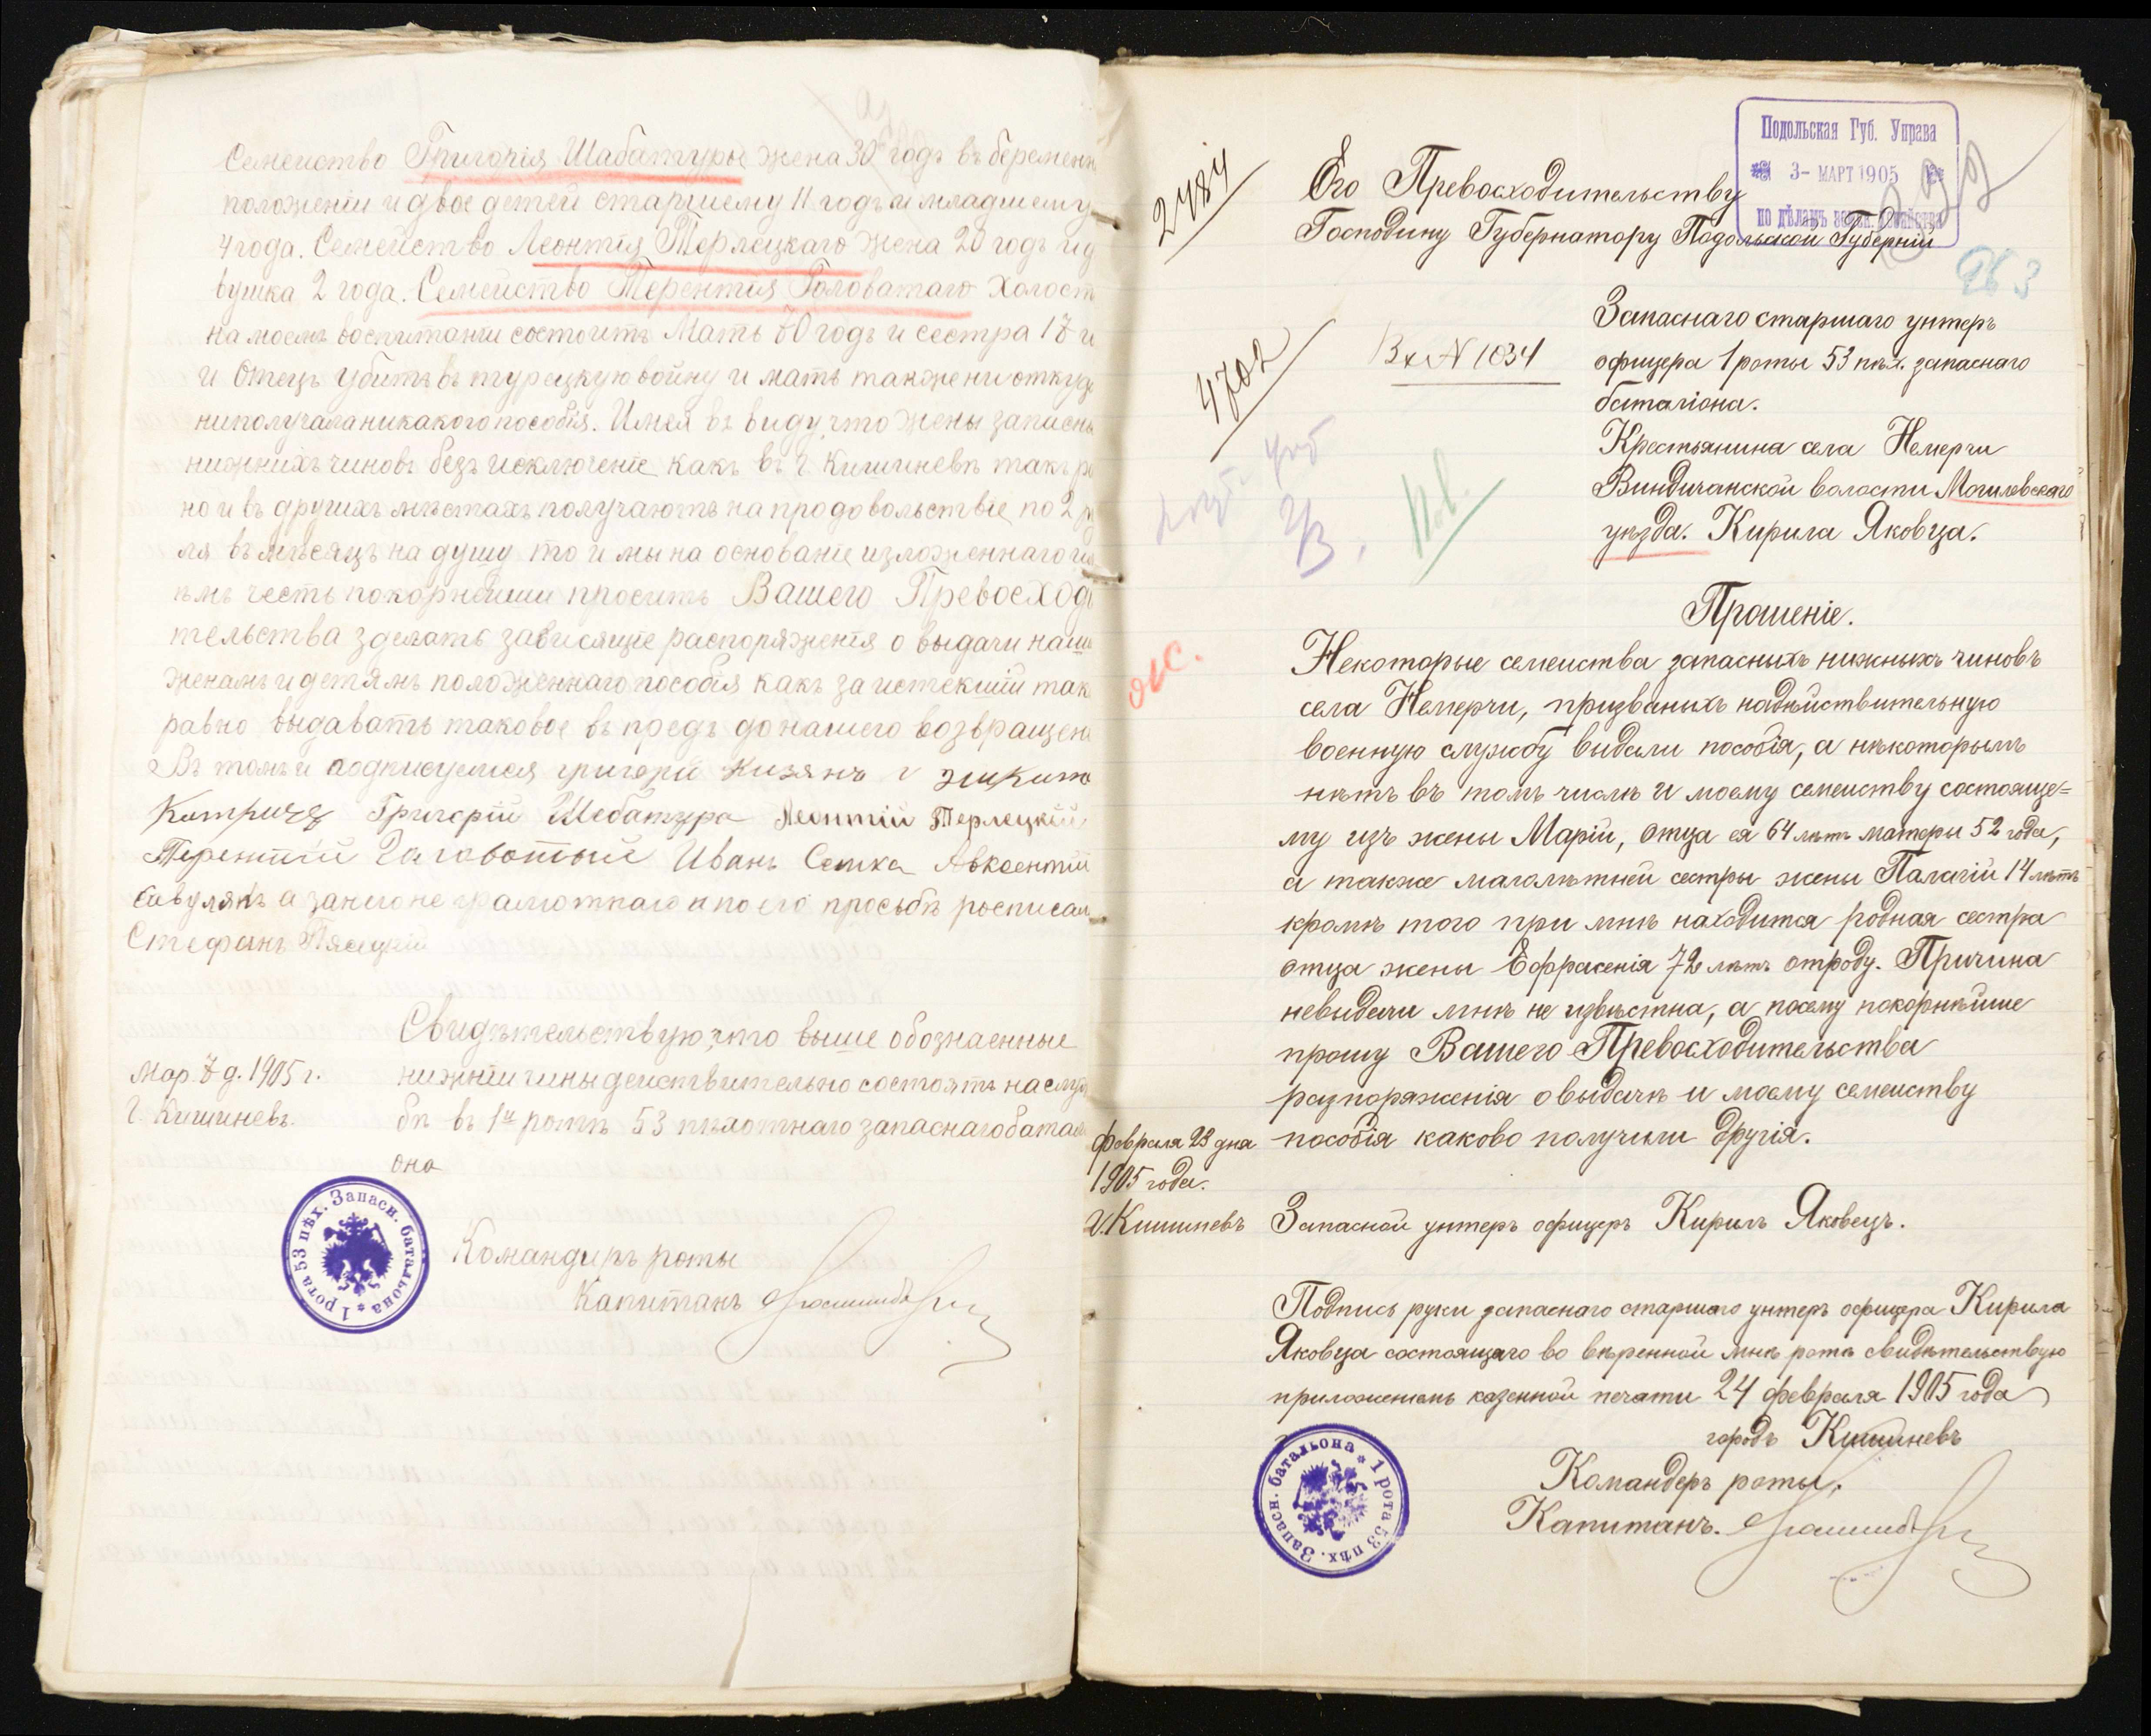 Семейство Григорія Шабатуры жена 30 годъ въ беременн
положеніи и двое детей старшему 11 годъ и младшему
4 года. Семейство Леонтія Терлецкаго жена 20 годъ и д
вушка 2 года. Семейство Терентія Головатаго холост
на моемъ воспитаніи состоитъ Мать 50 годъ и сестра 18 и
и Отецъ убитъ въ турецкую войну и мать также ни откуда
ни получала никакого пособія. Имея въ виду что жены запасн
нижнихъ чиновъ безъ исключеніе какъ въ г. Кишиневѣ такъ ра
но и въ другихъ мѣстахъ получаютъ на продовольствіе по 2 ру
ля въ мѣсяцъ на душу то и мы на основаніе изложеннаго им
ѣмъ честь покорнейши просить Вашего Превосходи
тельства зделать зависящіе распоряженія о выдачи наши
женамъ и детямъ положеннаго пособія какъ за истекшій так
равно выдавать таковое въ предъ до нашего возвращен
Въ томъ и подписуемся григорій Кизянъ Никита
Катрича Григорій Шебатура Леонтій Терлецкій
Терентій Галоватый Иванъ Сошка Авксентій
Савулякъ а за него не грамотнаго и по его просьбѣ росписал
Стефанъ Пясецкій
Свидѣтельствую, что выше обознаенные
нижніи чины действительно состоятъ на служ
бѣ въ 1й ротѣ 53 пѣхотнаго запаснаго батал
она
Мар. 8 д. 1905 г.
Г. Кишиневъ.
1 рота 53 пѣх. Запасн. батальона
Командиръ роты
Капитанъ
2484
4702
Подольская Губ. Управа
3- МАРТ 1905
по дѣламъ
Его Превосходительству
Господину Губернатору Подольской Губерніи
963
Вх N 1034
Запаснаго старшаго унтеръ
офицера 1 роты 53 пѣх. запаснаго
баталіона.
Крестьянина села Немерчи
Виндичанской волости Могилевскаго
уѣзда. Кирила Яковца.
Прошеніе.
Некоторые семеиства запасныхъ нижныхъ чиновъ
села Немерчи, призваныхъ надѣйствительную
военную службу видали пособія, а нѣкоторымъ
нѣтъ въ томъ числѣ и моему семеиству состояще=
му изъ жены Маріи, Отца ея 64 лѣтъ матери 52 года,
а также малолѣтней сестры жены Палагіи 14 лѣтъ
кромѣ того при мнѣ находится родная сестра
отца жены Ефрасенія 72 лѣтъ отроду. Причина
невидачи мнѣ не извѣстна, а посему покорнѣйше
прошу Вашего Превосходительства
разпоряженія о выдачѣ и моему семеиству
пособія каково получили другія.
Февраля 23 дня
1905 года.
Г. Кишиневъ
Запасной унтеръ офицеръ Кирилъ Яковецъ.
Подпись руки запаснаго старшаго унтеръ офицера Кирила
Яковца состоящаго во ввѣренной мнѣ ротѣ свидѣтельствую
приложеніемъ казенной печати 24 февраля 1905 года
городъ Кишиневъ
1 рота 53 пѣх. Запасн. батальона
Командеръ роты,
Капитанъ.